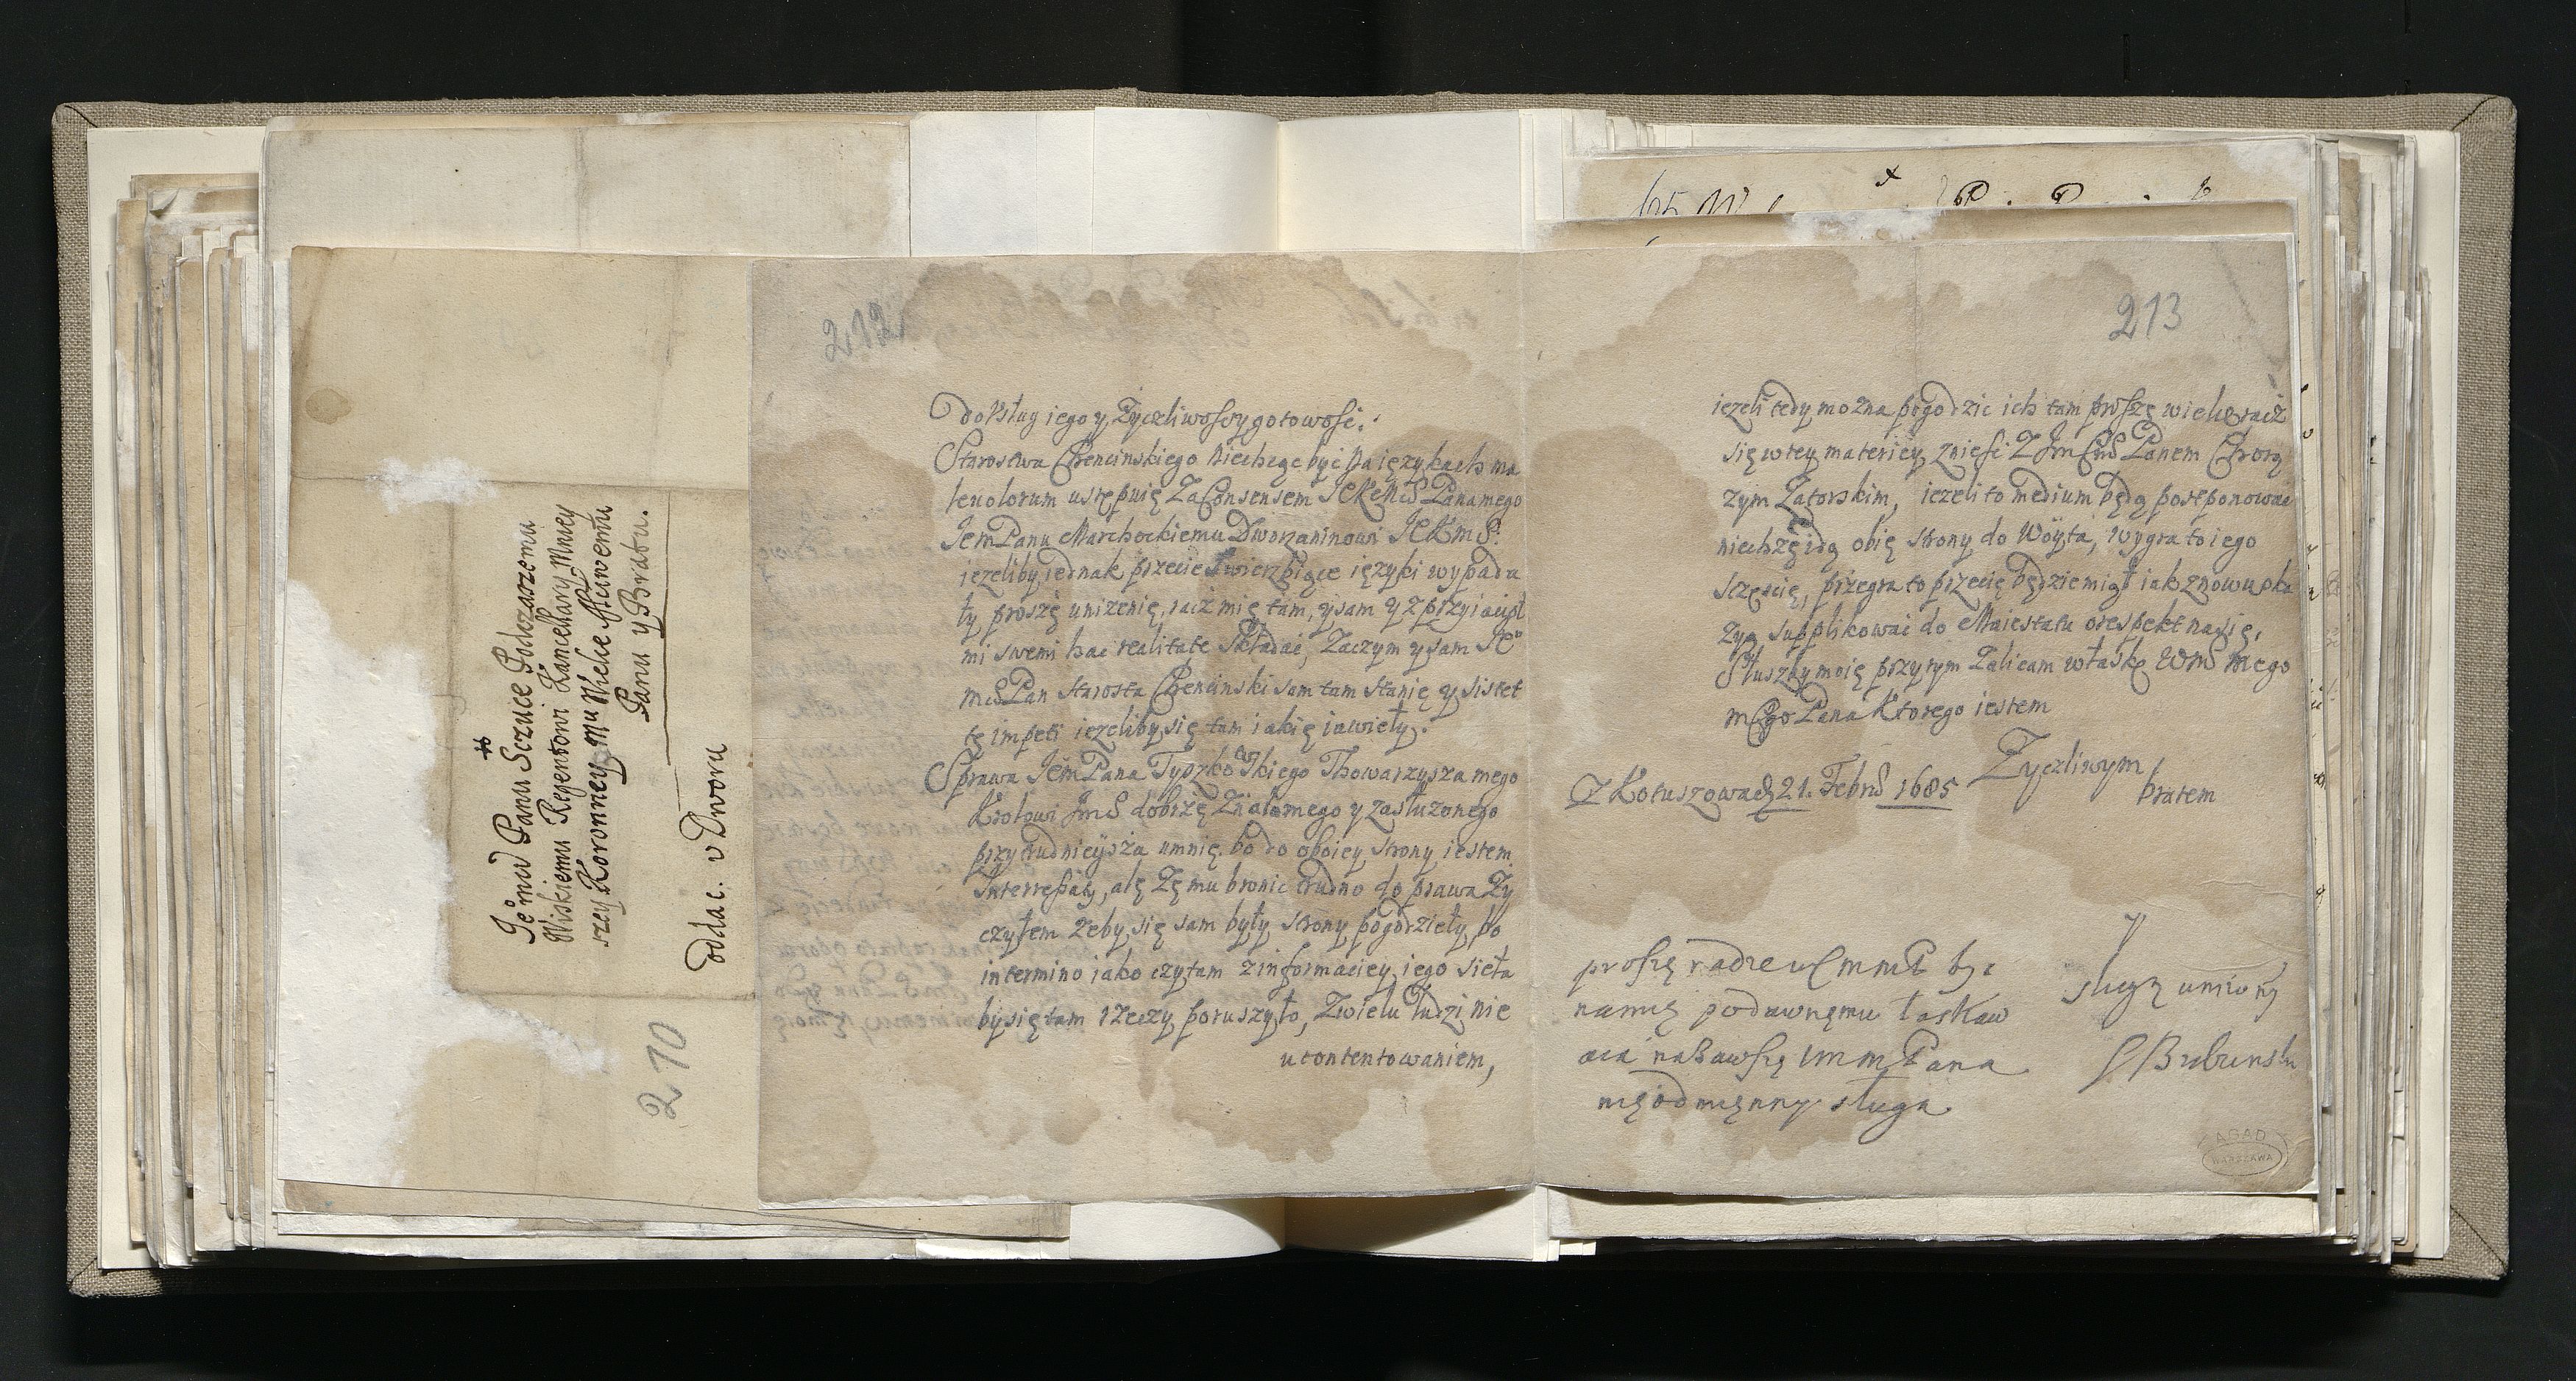 Jemći Panu Sczuce Podczaszemu
Wiskiemu Regentowi Kancellary Mniey
szey Koronney Mu Wielce Mciwemu
Panu y Bratu.
oddac. v Dworu
210
212
do Vsług iego y Zyczliwoscy gotowosć.
Starostwa Chencinskiego niechcąc być na ięzykach ma
leuolorum ustępuię Za Consensem JeKeMcS Pana mego
JemPanu Marchockiemu Dworzaninowi JeKmS:
ieżeliby iednak przecie swierzbiące ięzyki wypada
ły, proszę unizenię, racz mię tam, y sam y z przyiacioł
mi swemi hac realitate składać, Zaczym y sam Je
mcS Pan Starosta Chencinski sam tam stanię y sistet
tę impeti ieżeliby się tam iakię iawieły.
Sprawa JemPana Tyszkowskiego Thowarzysza mego
Krolowi JmS dobrzę Znaiomego y zasłuzonego
przytrudnieysza umnię. bo do oboiey strony iestem
Interressaty, alę Zę mu bronic trudno do prawa Zy
czyłem żeby się sam były strony pogodzieły, bo
in termino iako czytam z informaciey iego sieła
by się tam rzeczy poruszyło, Zwielu ludzi nie
ucontentowaniem,
213
ieżeli tedy mozna pogodzic ich tam proszę wielce racz
się w tey materiey znieść Z Jm Panem Chorą
zym Zatorskim, ieżeli to medium będą postponować
niechżę idą obię strony do Woyta, wygra to iego
sczęscię, przegra to przecię będzie miał iak znowu oka
zyą supplikować do Maiestatu o respekt na się,
Słuszby moię przytym Zalicam w łaskę WmS mego
mcgo Pana Ktorego iestem
Zyczliwym
bratem
Z Kotuszowa d 21. FebrS 1685
y
sługą uniżony
proszę radze WmmP byc
namię podawnęmu łaskaw
aia nazawszę WmmPana
nięodmięnny sługa
AGAD
WARSZAWA